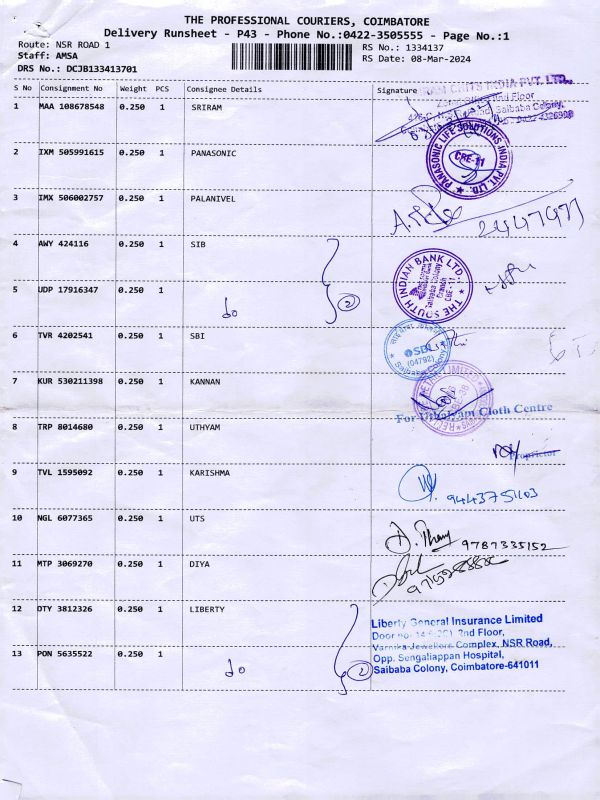 THE PROFESSIONAL COURIERS, COIMBATORE
Delivery Runsheet - P43 - Phone No.:0422-3505555 - Page No.:1
Route: NSR ROAD 1
RS No.: 1334137
Staff: AMSA
RS Date: 08-Mar-2024
DRS No.: DCJB133413701
S No Consignment No Weight PCS Consignee Details Signature
1 MAA 108678548 0.250 1 SRIRAM
CHITS INDIA PVT. LTD.
2nd Floor
Saibaba Colony,
2 IXM 505991615 0.250 1 PANASONIC
PANASONIC LIFE SOLUTIONS INDIA PVT. LTD.
CBE-11
3 IMX 506002757 0.250 1 PALANIVEL
4 AWY 424116 0.250 1 SIB
2
THE SOUTH INDIAN BANK LTD.
Saibaba Colony
Branch
CBE-11
5 UDP 17916347 0.250 1 do
6 TVR 4202541 0.250 1 SBI
SBI
(04792)
Saibaba Colony
7 KUR 530211398 0.250 1 KANNAN
For Uthaiyam Cloth Centre
8 TRP 8014680 0.250 1 UTHYAM
Proprietor
9 TVL 1595092 0.250 1 KARISHMA
10 NGL 6077365 0.250 1 UTS
D. Thany 9787335152
11 MTP 3069270 0.250 1 DIYA
12 OTY 3812326 0.250 1 LIBERTY
Liberty General Insurance Limited
2nd Floor,
Varnika Jewellers Complex, NSR Road,
Opp. Sengaliappan Hospital,
Saibaba Colony, Coimbatore-641011
13 PON 5635522 0.250 1 do 2